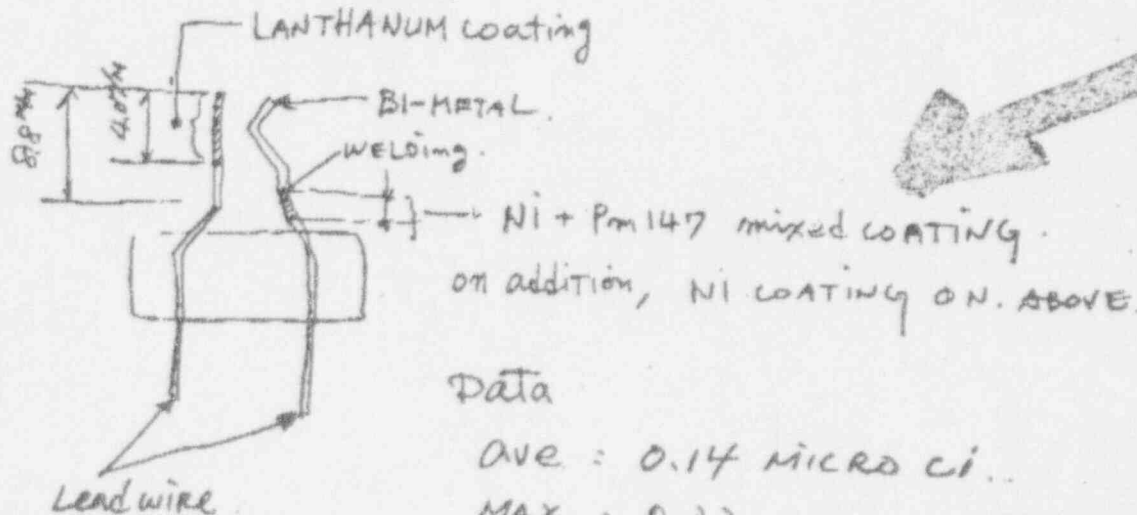 LANTHANUM coating
8.8 M/M
4.0 M/M
BI-METAL.
WELDING.
Ni + Pm147 mixed COATING.
on addition, NI COATING ON. ABOVE.
Data
ave : 0.14 MICRO Ci..
MAX :
Lead wire